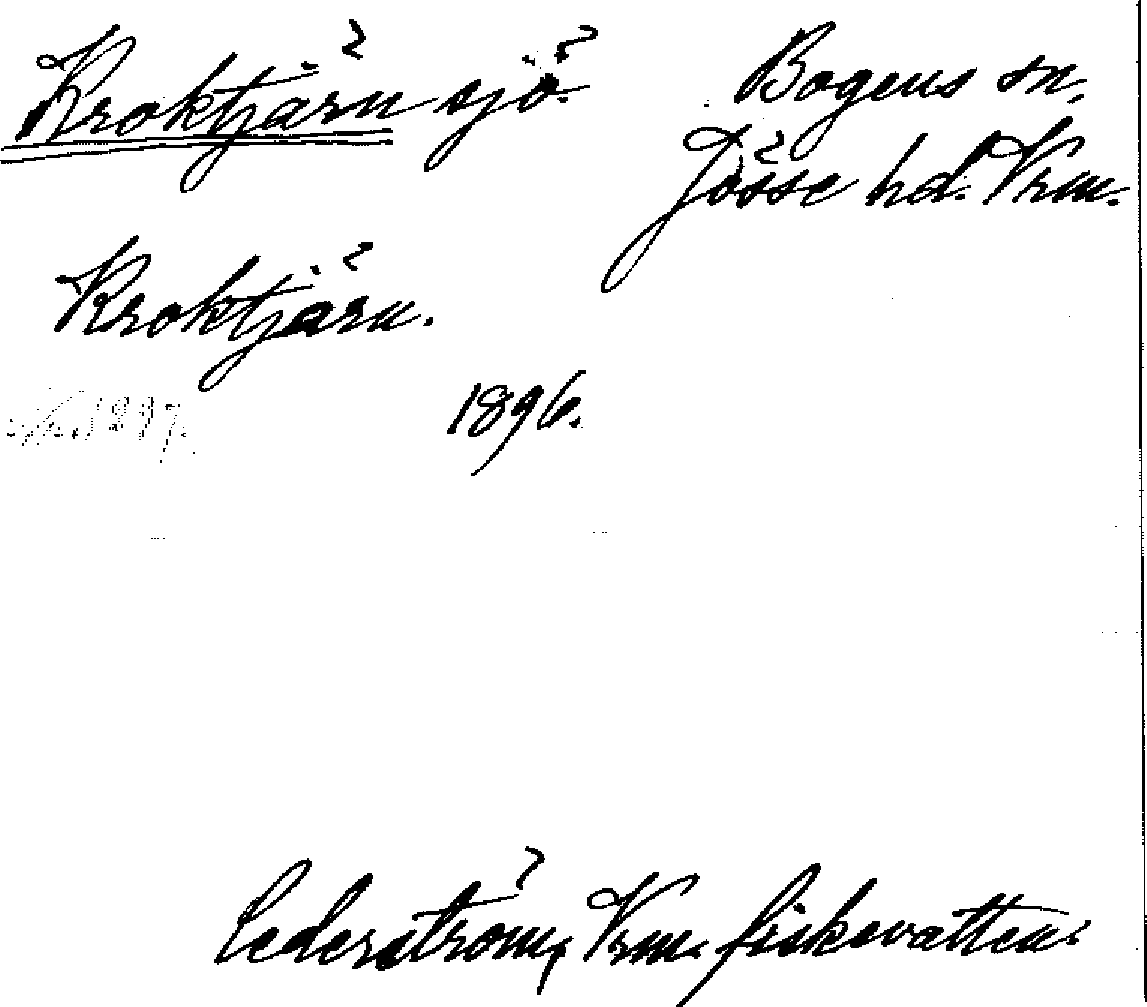 Kroktjärn sjö.
Bogens sn.
Jösse hd. Vrm.
Kroktjärn.
1897.
1896.
Cederström, Vrm. fiskevatten.